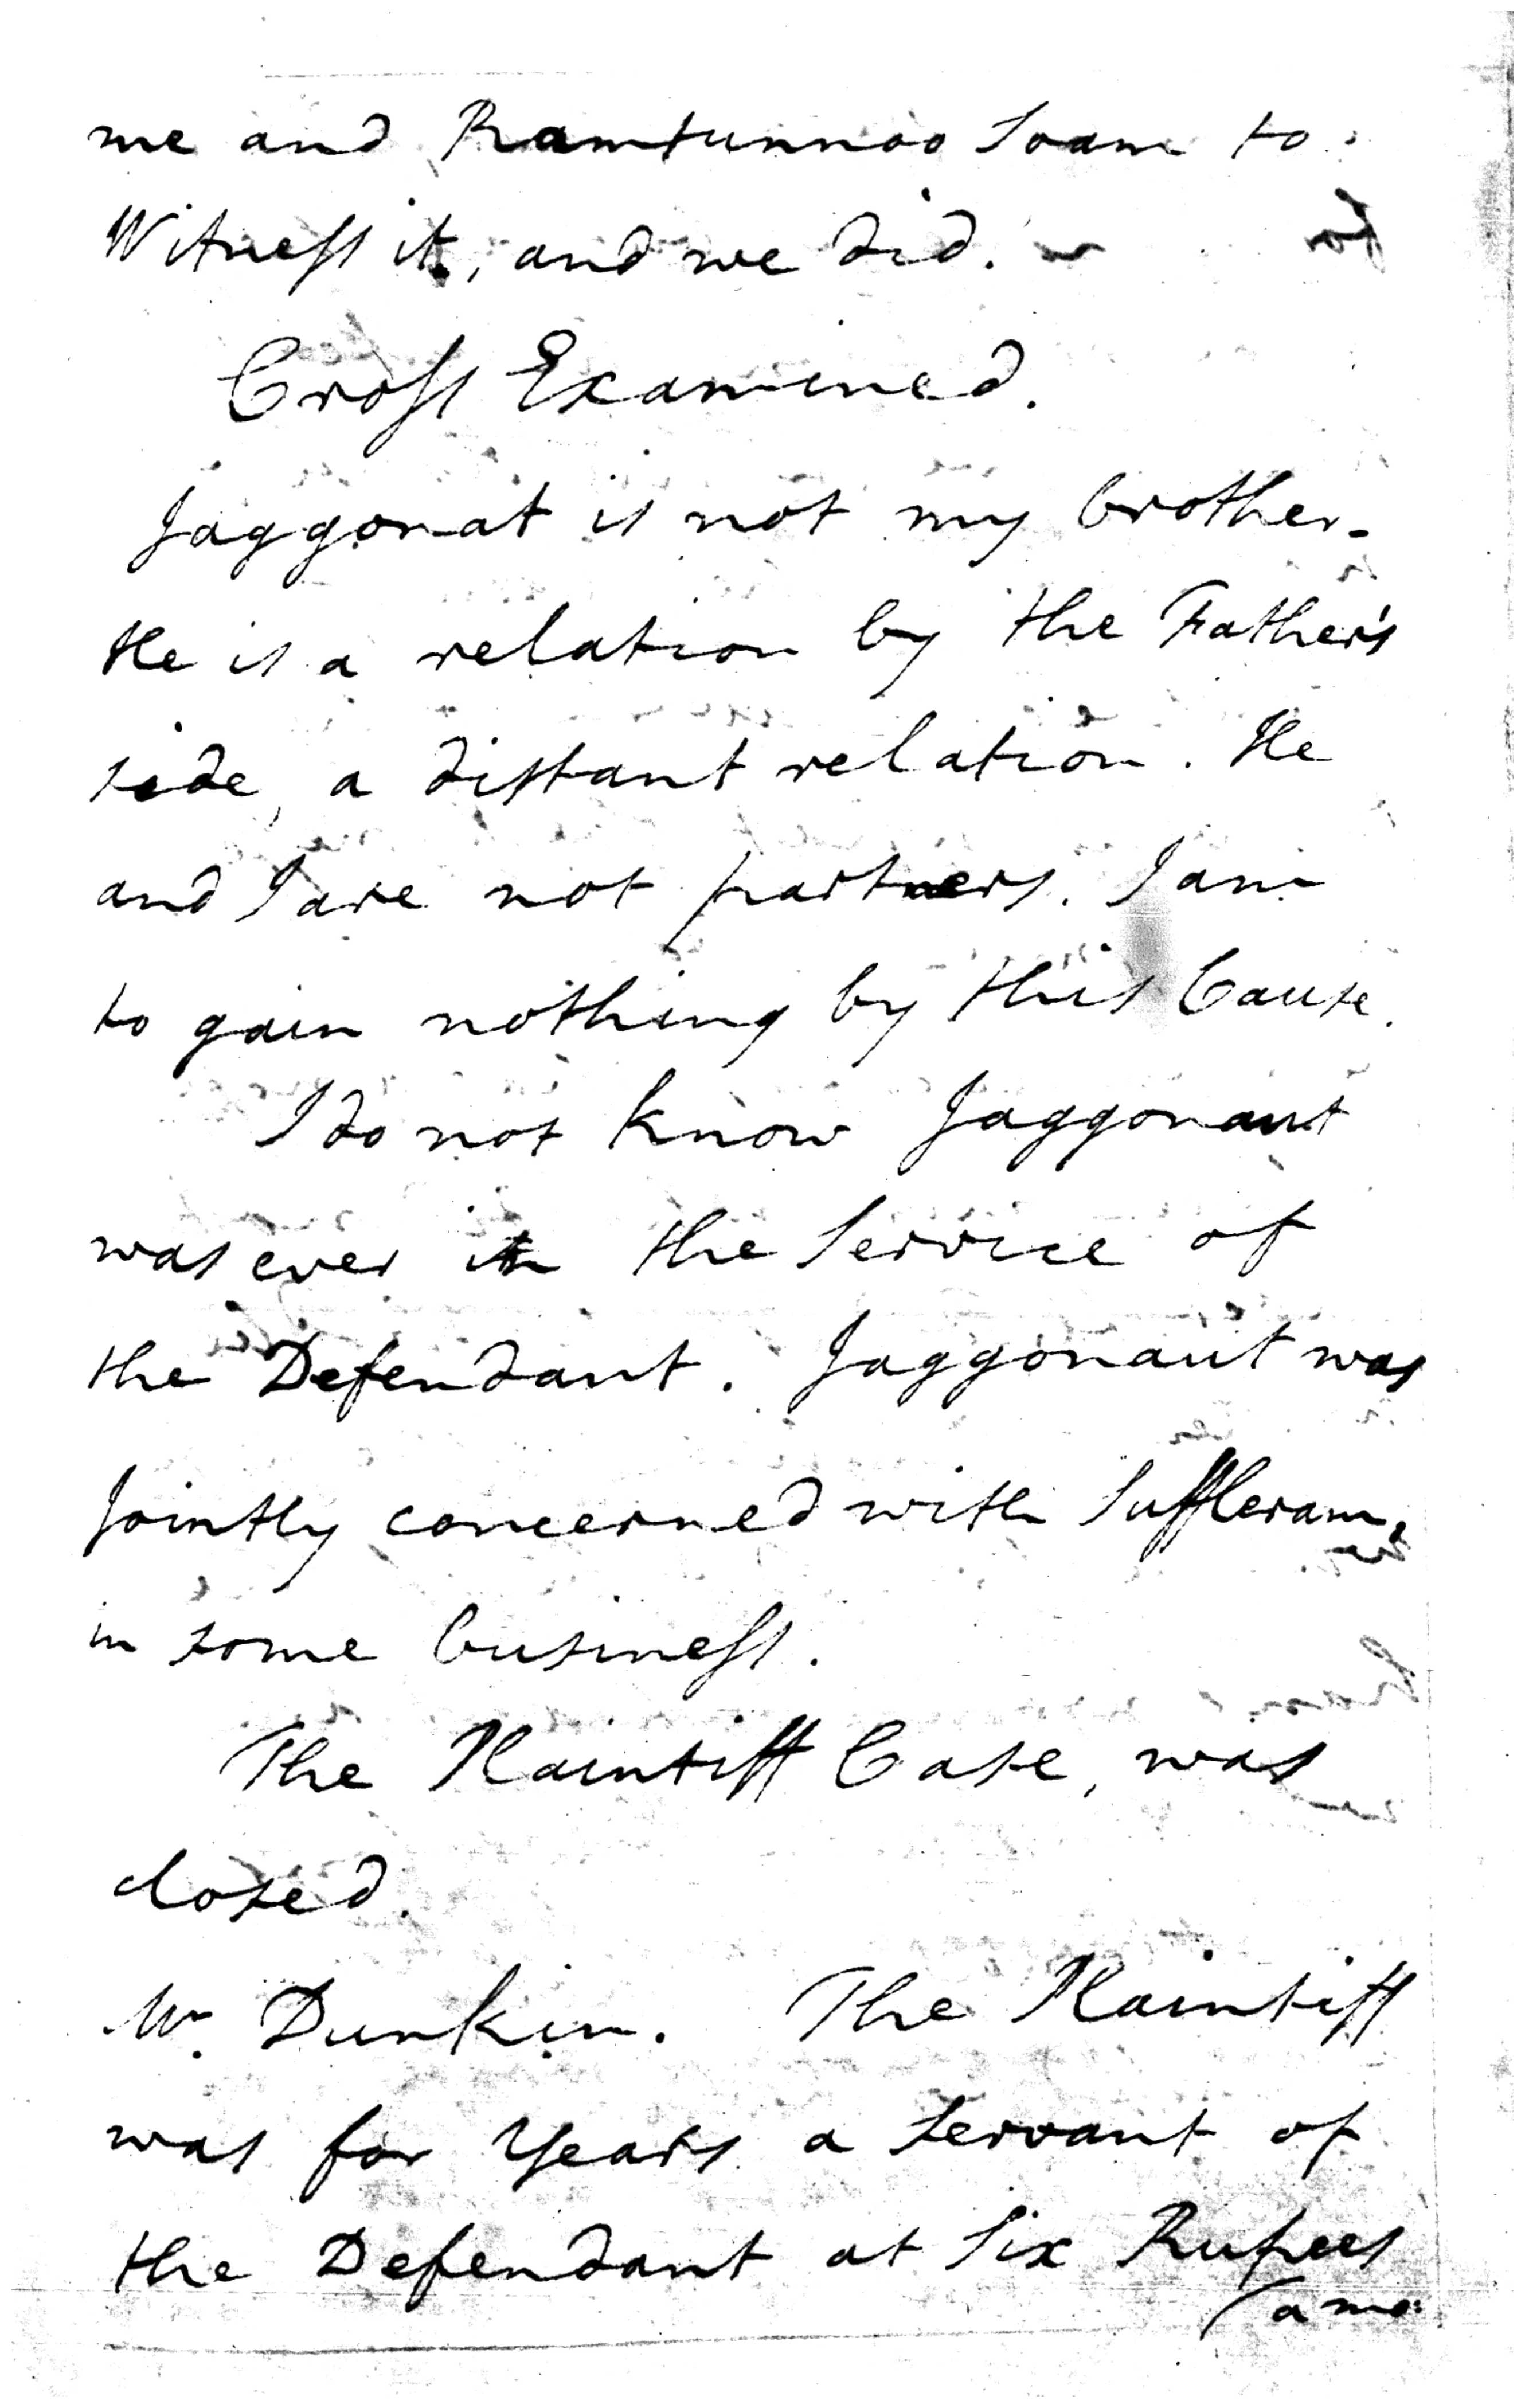 me and Ramtunnoo Soam to
Witneſs it, and we did.
Croſs Examined.
Jaggonat is not my brother.
He is a relation by the Father's
side, a distant relation. He
and I are not partners. I am
to gain nothing by this Cause.
I do not know Jaggonaut
was ever in the Service of
the Defendant. Jaggonaut was
Jointly concerned with Suffleram,
in some busineſs.
The Plaintiff Case, was
closed.
Mr. Dunkin. The Plaintiff
was for Years a servant of
the Defendant at Six Rupees
(a mo: